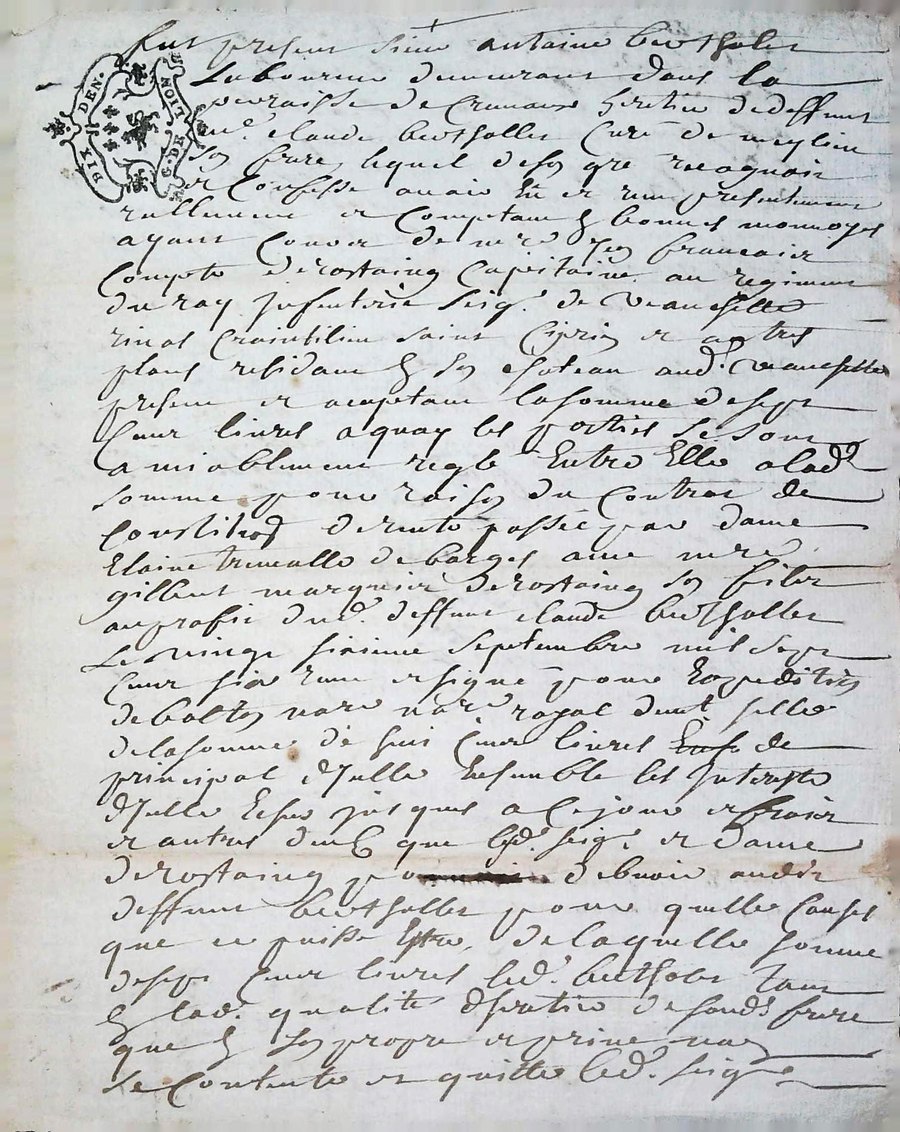 fut present sieur antoine berthollet
Laboureur demeurant dans la
parroisse de Cremeaux heritier de deffunt
mr. claude berthollet Curé de
son frere lequel de son gré recognoit
et Confesse avoir Eu et reçeu presentement
reellement et Comptant En bonnes monnoyes
ayant Cours de mre françois
Compte derostaing Capitaine au regiment
du roy infenterie seigr. de veauchette
rivas Craintilieu saint Ciprien et autres
places residant En son chateau aud. veauchette
present et aceptant la somme de sept
Cent livres a quoy les parties se sont
amiablement reglé Entre Elle a lad.
somme pour raison du Contrat de
Constituon de rente passée par dame
Elaine trunelle de barges avec mre
gilbert marquis derostaing son fils
au profit dud. deffunt claude berthollet
Le vingt sixieme septembre mil sept
Cent six reçeu et signé pour Expedition
de notre royal dont selle
de la somme de huit Cent livres de
principal dIselle Ensemble les Interests
dIselle Echeu jusques a Ce jour et fraix
et autres deub que led. seigr. et dame
derostaing debvoir audit
deffunt berthollet pour quelle Causes
que ce puisse Estre, de laquelle somme
de sept Cent livres led. berthollet tant
En lad. qualité dheritier de sond. frere
que En son propre et privé nom
se Contente et quitte led. seigr
DIX DEN.
G. DE
NOIT